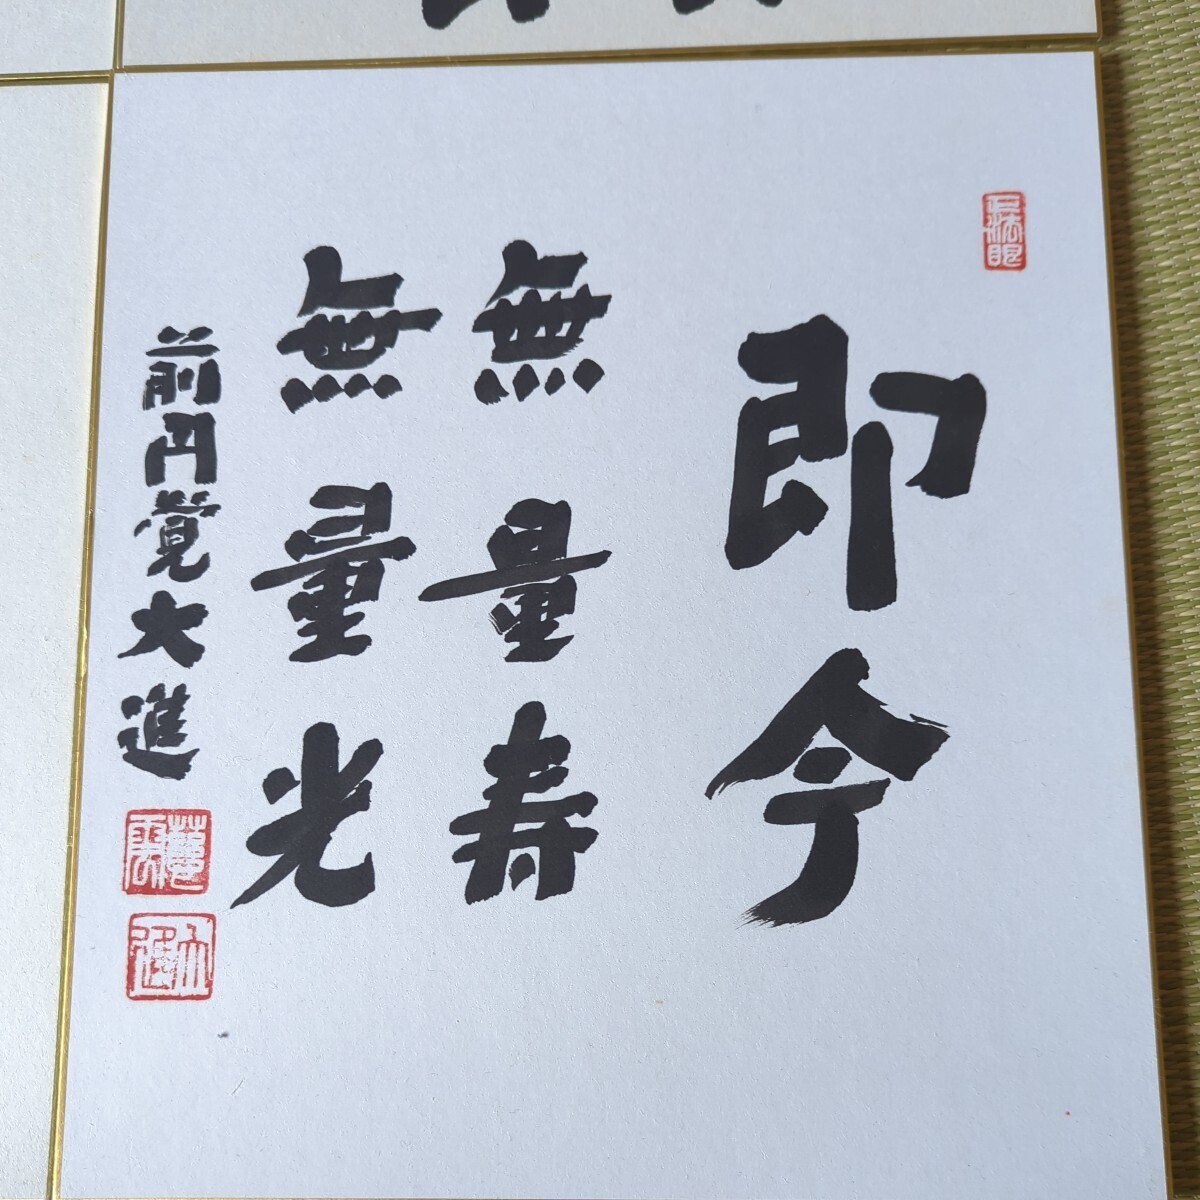 即今
無量寿
無量光
前円覚大進